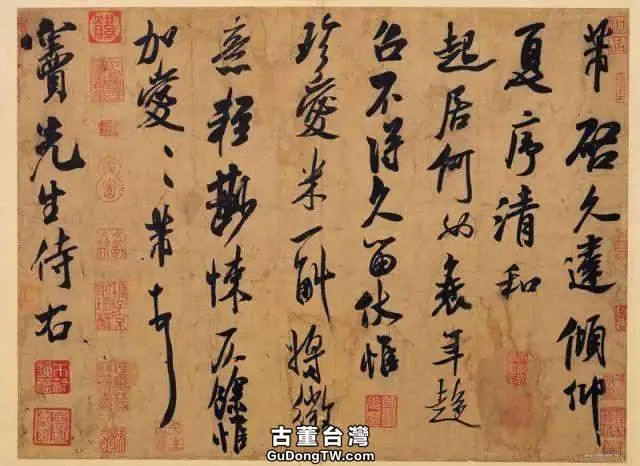 芾啓久違傾仰
夏序清和
起居何如衰年趍
召不得久留伏惟
珍愛米一斛將微
意輕尠悚仄餘惟
加愛〻芾頓首
竇先生侍右
古董台灣
GuDongTW.com